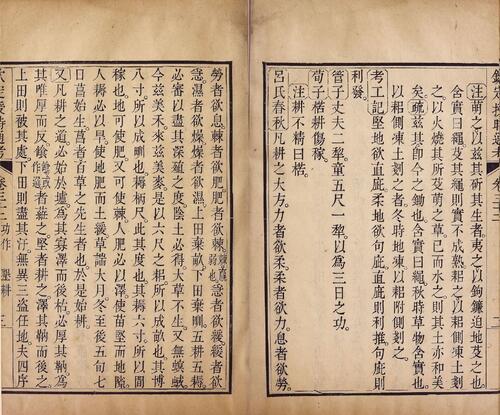 欽定授時通考
卷三十二
注萌之以兹其斫其生者夷之以鉤鐮迫地芟之也
含實曰繩芟其繩則實不成熟耜之以耜側凍土剗
之以火燒其所芟萌之草已而水之則其土亦和美
矣疏兹其卽今之鋤也含實曰繩秋時草物含實也
以耜側凍土剗之者冬時地凍以耜附側剗之
考工記堅地欲直庇柔地欲句庇直庇則利推句庇則
利發
管子丈夫二犂童五尺一犂以爲三日之功
荀子楛耕傷稼
注耕不精曰楛
呂氏春秋凡耕之大方力者欲柔柔者欲力息者欲勞
勞者欲息棘者欲肥肥者欲棘急者欲緩緩者欲
急濕者欲燥燥者欲濕上田棄畝下田棄甽五耕五耨
必審以盡其深殖之度陰土必得大草不生又無螟蜮
今兹美禾來兹美麥是以六尺之耜所以成畝也其博
八寸所以成甽也耨柄尺此其度也其耨六寸所以間
稼也地可使肥又可使棘人肥必以澤使苗堅而地隙
人耨必以旱使地肥而土緩草諯大月冬至後五旬七
日菖始生菖者百草之先生者也於是始耕
又凡耕之道必始於壚爲其寡澤而後枯必厚其靹爲
其唯厚而反䭈者莊之堅者耕之澤其靹而後之
上田則被其處下田則盡其汙無與三盜任地夫四序
欽定授時通考
卷三十二 功作 墾耕
三